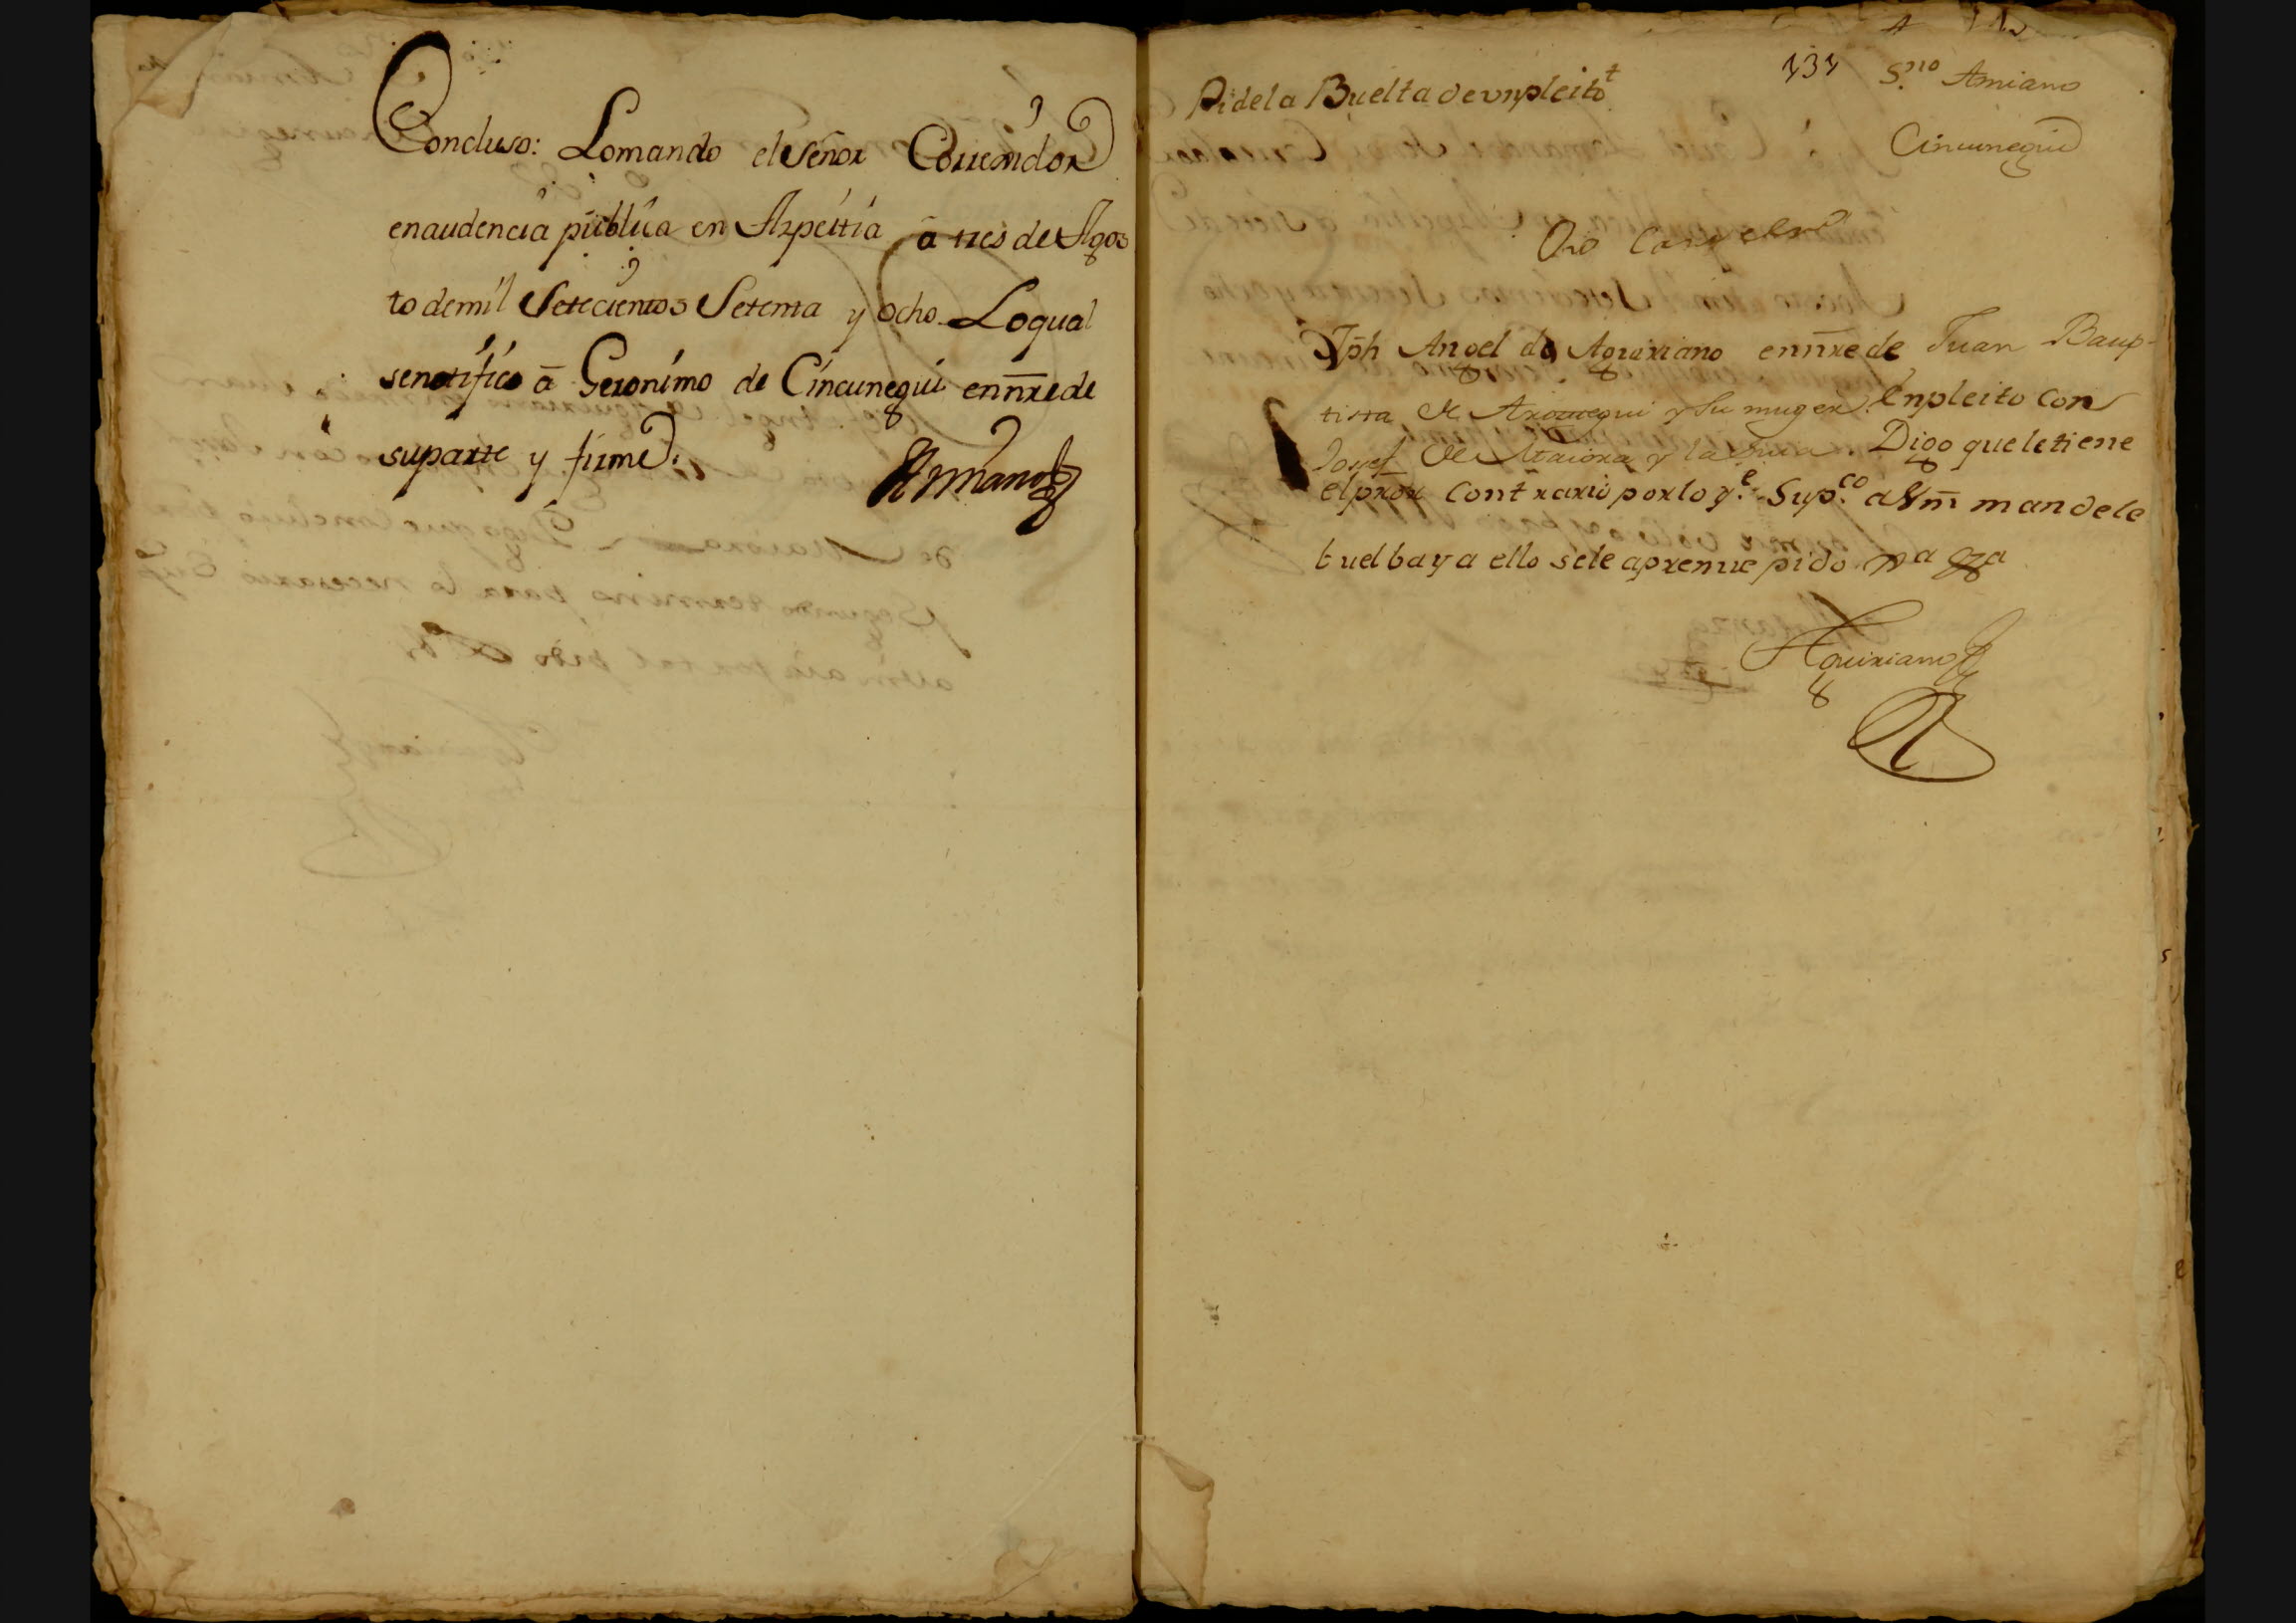 Concluso: Lomando el señor Correxidor
enaudencia publica en Azpeitia, â tres de Agos
to demil Setecientos Setenta y ocho. Loqual
senotifico â Geronimo de Cincunegui ennr̃e de
suparte y firme.
Amiano
131
Pidela Buelta de vnpleito
S.rio Amiano
Cincunegui
Jph Angel de Aguiriano ennr̃e de Juan Baup-
tista de Aroztegui y Su muger. Enpleito con
Josef de Maiora y la suia. Digo que letiene
elpror contrario porlo q.e Sup.co aVm̃ mandele
buelba y a ello sele apremie pido
Aguiriano